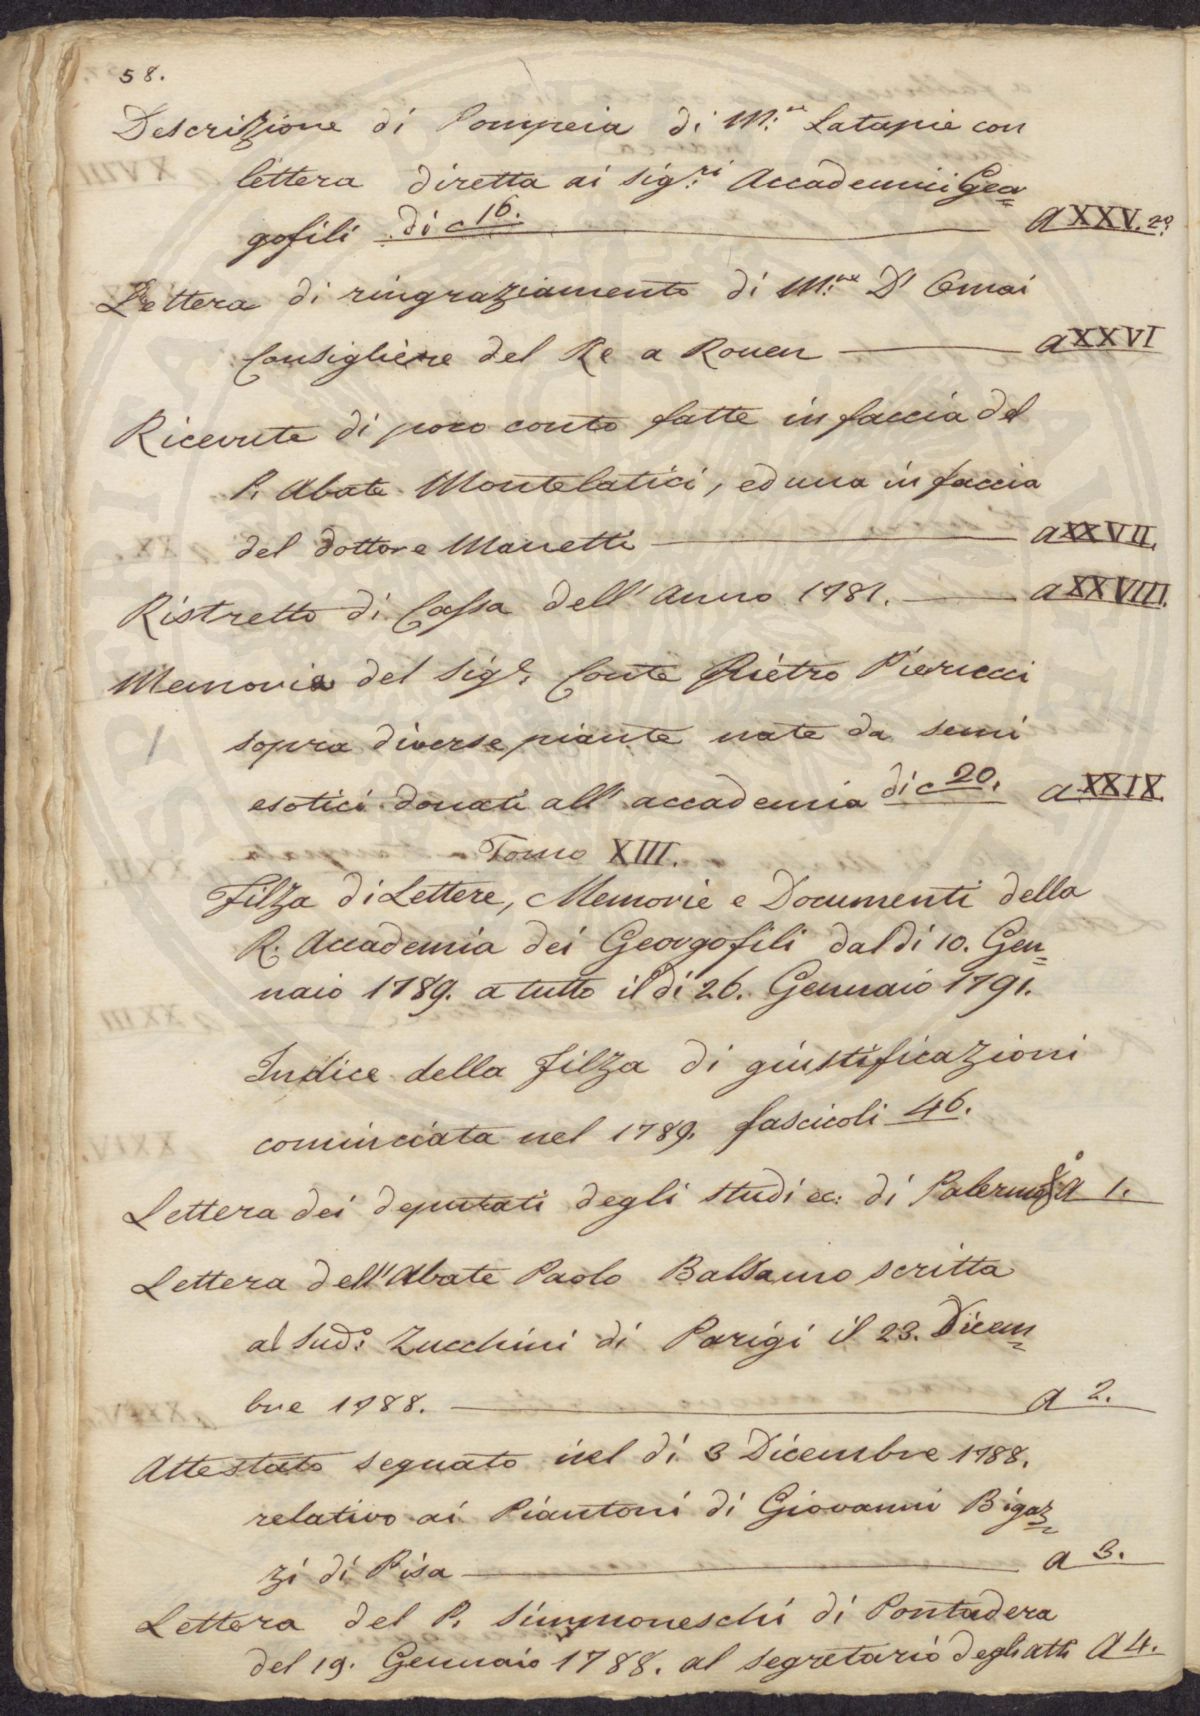 58.
Descrizione di Pompeia di M.r Latapie con
lettera diretta ai Sig.ri Accademici Geo=
gofili di c 16. a XXV. 2º
Lettera di ringraziamento di M.r D' Omai
Consigliere del Re a Rouen a XXVI
Ricevute di poco conto fatte in faccia del
P. Abate Montelatici, ed una in faccia
del dottore Manetti a XXVII.
Ristretto di Cassa dell' Anno 1781. a XXVIIII.
Memoria del Sig.e Conte Pietro Pierucci
sopra diverse piante nate da semi
esotici donati all' accademia di c 20. a XXIX.
Tomo XIII.
Filza di Lettere, Memorie e Documenti della
R. Accademia dei Georgofili dal dì 10. Gen=
naio 1789. a tutto il dì 26. Gennaio 1791.
Indice della Filza di giustificazioni
cominciata nel 1789. fascicoli 46.
Lettera dei deputati degli studi ec: di Palermo a 1.
Lettera dell' Abate Paolo Balsamo scritta
al Sud.º Zucchini di Parigi il 23. Dicem=
bre 1788. a 2.
Attestato segnato nel dì 3 Dicembre 1788.
relativo ai Piantoni di Giovanni Bigaz=
zi di Pisa a 3.
Lettera del P. Simmoneschi di Pontadera
del 19. Gennaio 1788. al segretario degli atti a 4.